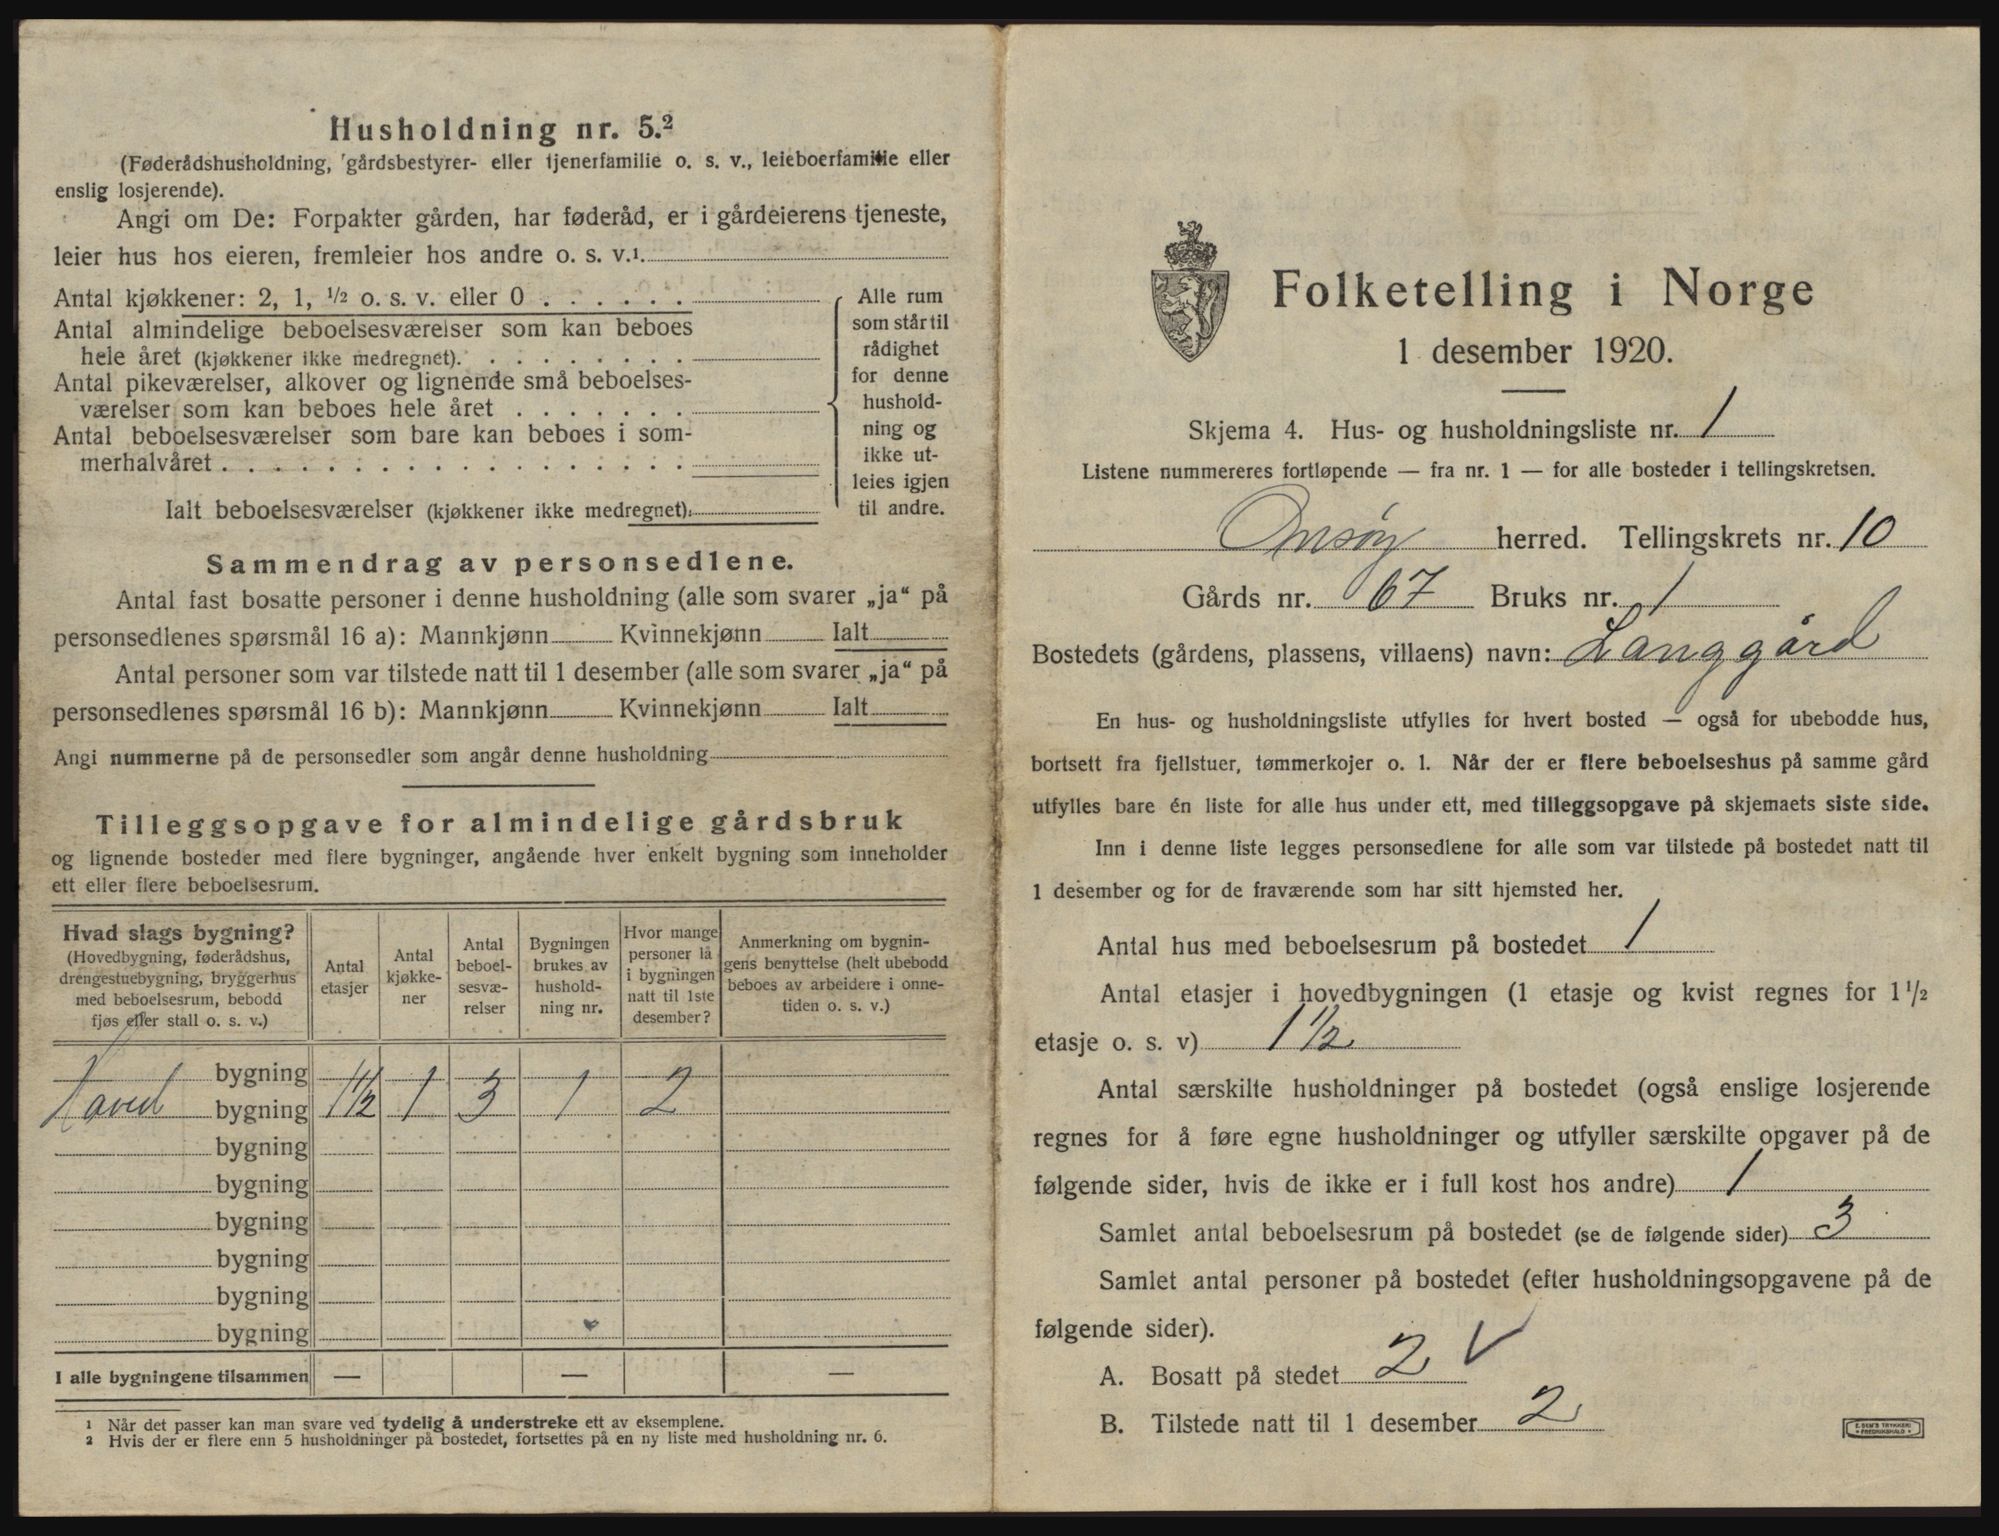 Husholdning nr. 5.²
(Føderådshusholdning, gårdsbestyrer- eller tjenerfamilie o. s. v., leieboerfamilie eller
enslig losjerende).
Angi om De: Forpakter gården, har føderåd, er i gårdeierens tjeneste,
leier hus hos eieren, fremleier hos andre o. s. v.¹.
Antal kjøkkener: 2, 1, ½ o. s. v. eller 0 . . . . . .
Antal almindelige beboelsesværelser som kan beboes
hele året (kjøkkener ikke medregnet). . . . . . . . .
Antal pikeværelser, alkover og lignende små beboelses-
værelser som kan beboes hele året . . . . . . .
Antal beboelsesværelser som bare kan beboes i som-
merhalvåret . . . . . . . . . . . . . . . . . .
Ialt beboelsesværelser (kjøkkener ikke medregnet):
Alle rum
som står til
rådighet
for denne
hushold-
ning og
ikke ut-
leies igjen
til andre.
Sammendrag av personsedlene.
Antal fast bosatte personer i denne husholdning (alle som svarer „ja“ på
personsedlenes spørsmål 16 a): Mannkjønn Kvinnekjønn Ialt
Antal personer som var tilstede natt til 1 desember (alle som svarer „ja“ på
personsedlenes spørsmål 16 b): Mannkjønn Kvinnekjønn Ialt
Angi nummerne på de personsedler som angår denne husholdning
Tilleggsopgave for almindelige gårdsbruk
og lignende bosteder med flere bygninger, angående hver enkelt bygning som inneholder
ett eller flere beboelsesrum.
Hvad slags bygning?
(Hovedbygning, føderådshus,
drengestuebygning, bryggerhus
med beboelsesrum, bebodd
fjøs eller stall o. s. v.)
Antal
etasjer
Antal
kjøkke-
ner
Antal
beboel-
sesvæ-
relser
Bygningen
brukes av
hushold-
ning nr.
Hvor mange
personer lå
i bygningen
natt til 1ste
desember?
Anmerkning om bygnin-
gens benyttelse (helt ubebodd
beboes av arbeidere i onne-
tiden o. s. v.)
bygning
Hoved bygning 1½ 1 3 1 2
bygning
bygning
bygning
bygning
bygning
bygning
I alle bygningene tilsammen — — —
¹ Når det passer kan man svare ved tydelig å understreke ett av eksemplene.
² Hvis der er flere enn 5 husholdninger på bostedet, fortsettes på en ny liste med husholdning nr. 6.
Folketelling i Norge
1 desember 1920.
Skjema 4. Hus- og husholdningsliste nr. 1
Listene nummereres fortløpende — fra nr. 1 — for alle bosteder i tellingskretsen.
Onsøy herred. Tellingskrets nr. 10
Gårds nr. 67 Bruks nr. 1
Bostedets (gårdens, plassens, villaens) navn: Langgård
En hus- og husholdningsliste utfylles for hvert bosted — også for ubebodde hus,
bortsett fra fjellstuer, tømmerkojer o. l. Når der er flere beboelseshus på samme gård
utfylles bare én liste for alle hus under ett, med tilleggsopgave på skjemaets siste side.
Inn i denne liste legges personsedlene for alle som var tilstede på bostedet natt til
1 desember og for de fraværende som har sitt hjemsted her.
Antal hus med beboelsesrum på bostedet 1
Antal etasjer i hovedbygningen (1 etasje og kvist regnes for 1½
etasje o. s. v) 1½
Antal særskilte husholdninger på bostedet (også enslige losjerende
regnes for å føre egne husholdninger og utfyller særskilte opgaver på de
følgende sider, hvis de ikke er i full kost hos andre) 1
Samlet antal beboelsesrum på bostedet (se de følgende sider) 3
Samlet antal personer på bostedet (efter husholdningsopgavene på de
følgende sider).
A. Bosatt på stedet 2 V
B. Tilstede natt til 1 desember 2
E. SEM'S TRYKKERI
• FREDRIKSHALD •